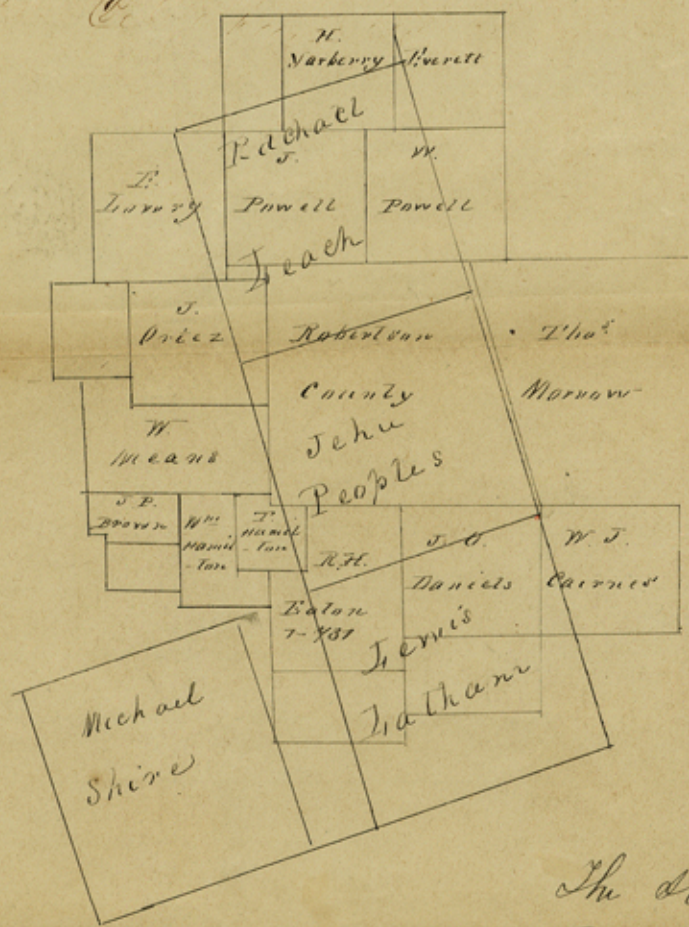 H.
Yarberry
Everett
Rachael
Leach
J.
Powell
W.
Powell
Lavery
J.
Ortez
Robertson
County
Thos
Morrow
Jehu
Peoples
W.
Means
J. P.
Brown
Wm
Hamil
-ton
T
Hamil
-ton
R.H.
Eaton
J. O.
Daniels
W. J.
Cairnes
Lewis
Latham
Michael
Shire
The